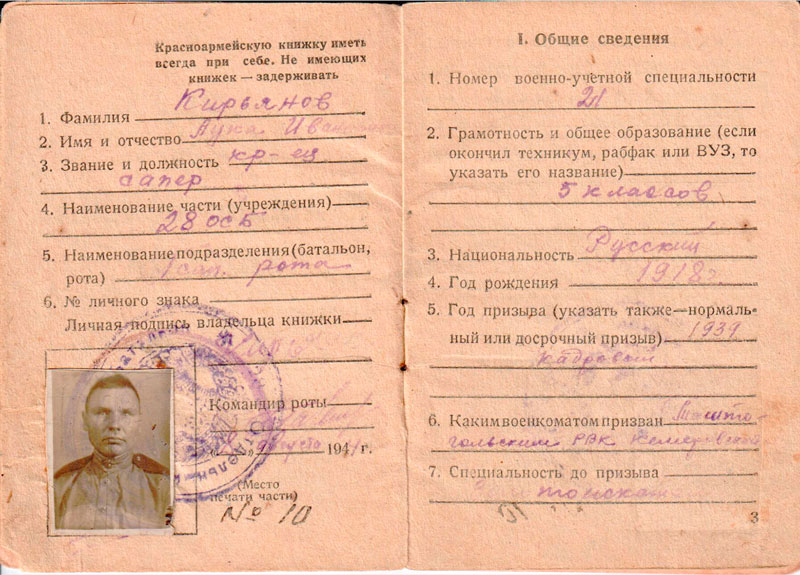 Красноармейскую книжку иметь
всегда при себе. Не имеющих
книжек — задерживать
1. Фамилия Кирьянов
2. Имя и отчество Лука
3. Звание и должность кр-ец
сапер
4. Наименование части (учреждения)
28 ОСБ
5. Наименование подразделения (батальон,
рота) 1 сап. рота
6. № личного знака
Личная подпись владельца книжки
Командир роты
августа 194 г.
(Место
печати части)
№ 10
I. Общие сведения
1. Номер военно-учётной специальности
21
2. Грамотность и общее образование (если
окончил техникум, рабфак или ВУЗ, то
указать его название)
5 классов
3. Национальность Русский
4. Год рождения 1918 г.
5. Год призыва (указать также—нормаль-
ный или досрочный призыв) 1939
кадровый
6. Каким военкоматом призван Ташто-
гольским РВК Кемеровской
7. Специальность до призыва
3